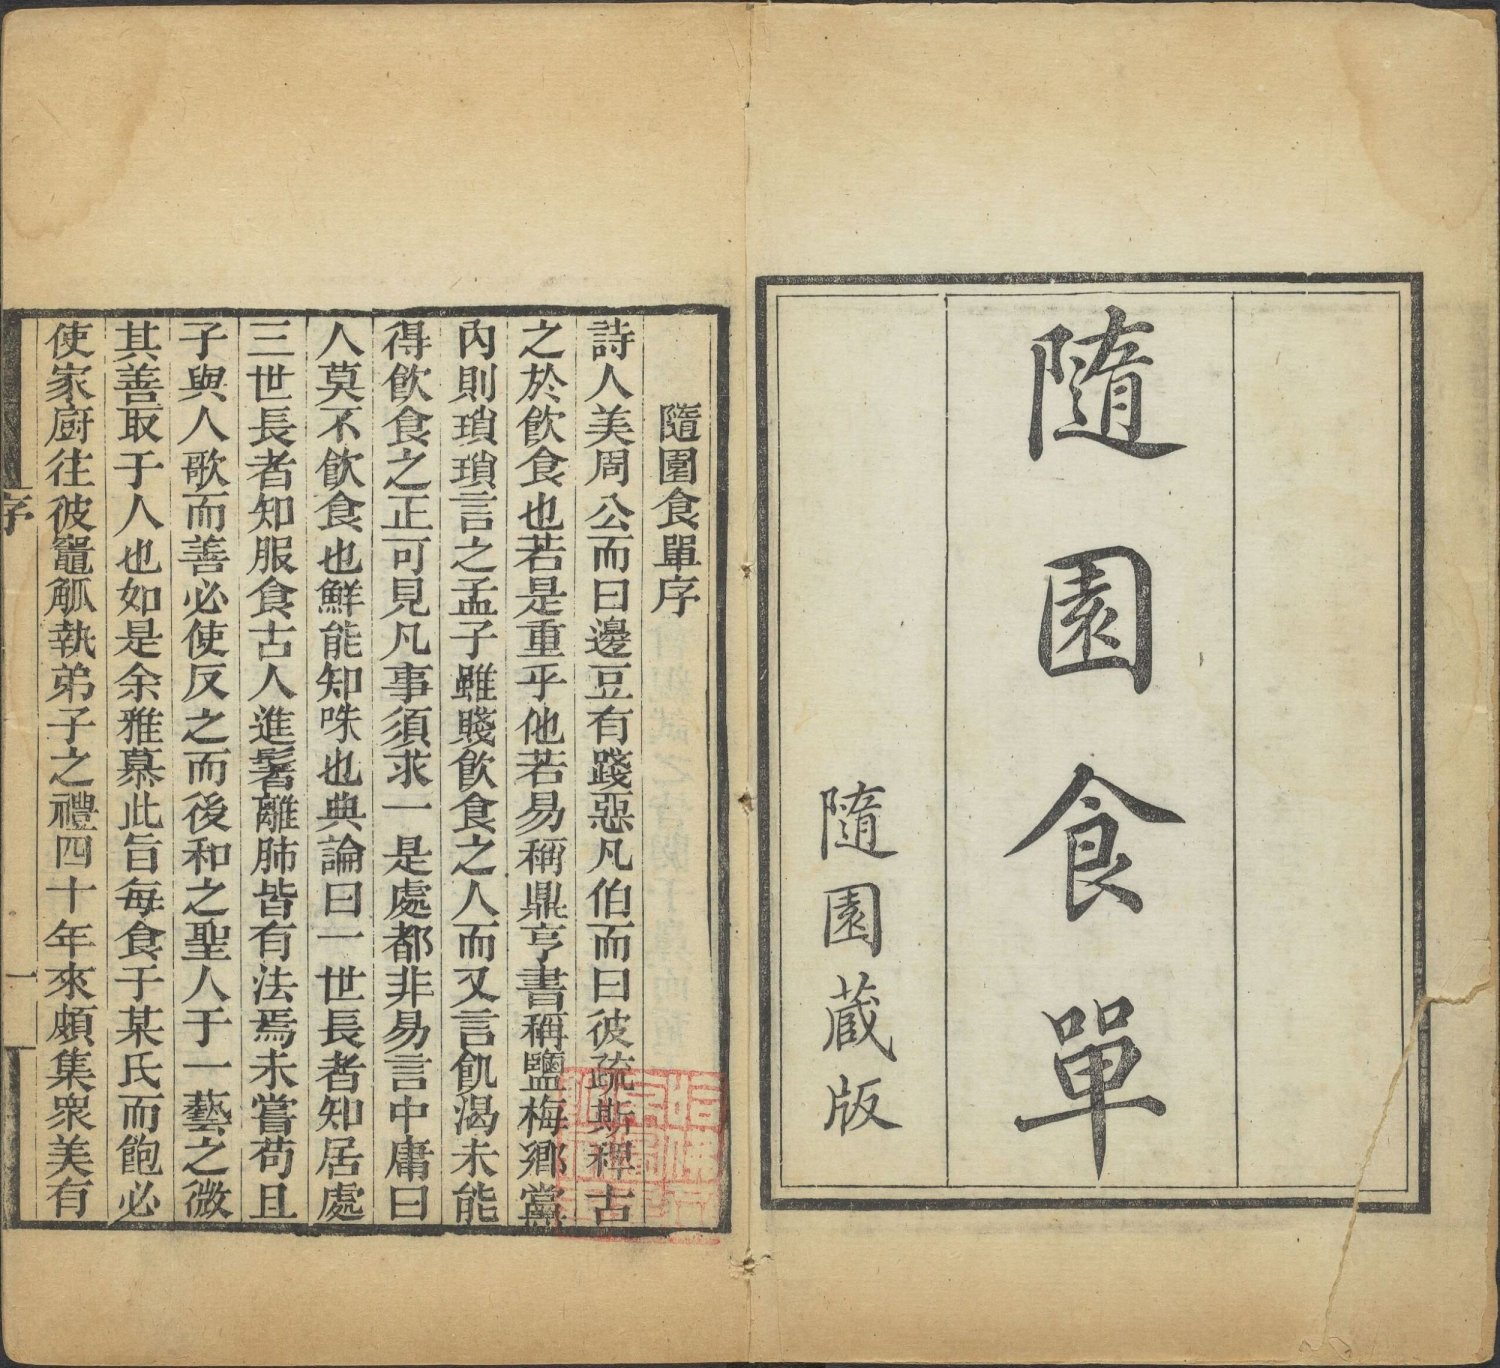 隨園食單
隨園藏版
隨園食單序
詩人美周公而曰籩豆有踐惡凡伯而曰彼疏斯稗古
之於飲食也若是重乎他若易稱鼎亨書稱鹽梅鄉黨
內則瑣瑣言之孟子雖賤飲食之人而又言飢渴未能
得飲食之正可見凡事須求一是處都非易言中庸曰
人莫不飲食也鮮能知味也典論曰一世長者知居處
三世長者知服食古人進鬐離肺皆有法焉未嘗苟且
子與人歌而善必使反之而後和之聖人于一藝之微
其善取于人也如是余雅慕此旨每食于某氏而飽必
使家廚往彼竈觚執弟子之禮四十年來頗集衆美有
序
一